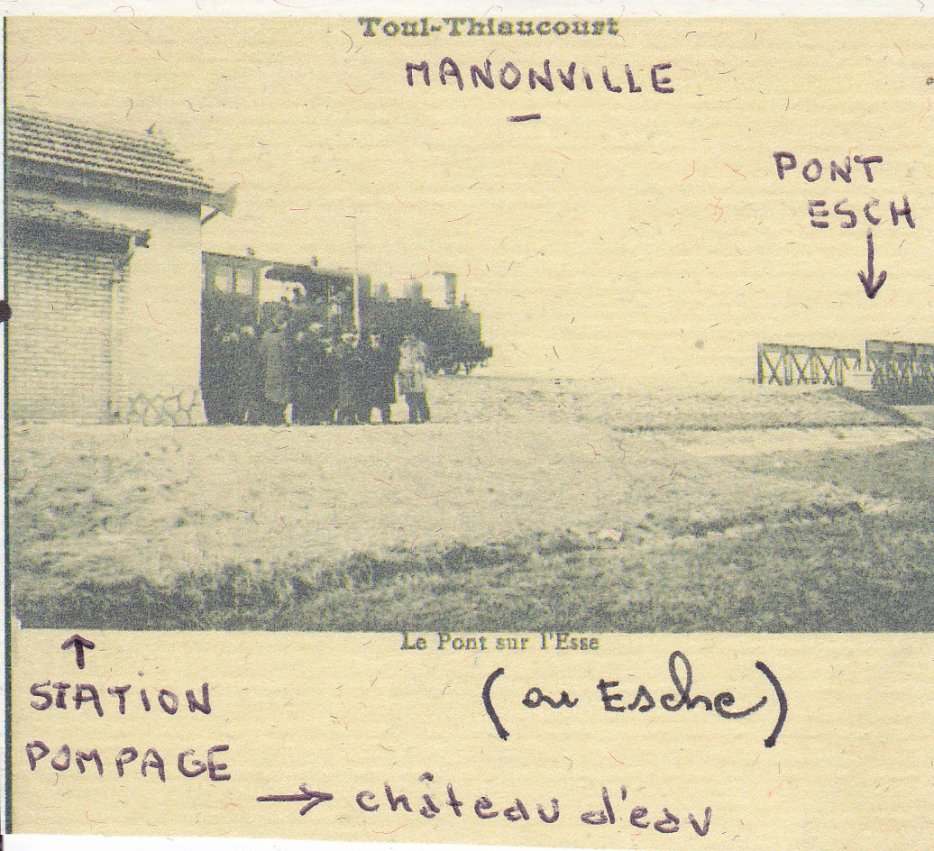 Toul-Thiaucourt
MANONVILLE
PONT
ESCH
Le Pont sur l'Esse
(ou Esche)
STATION
POMPAGE
→ château d'eau